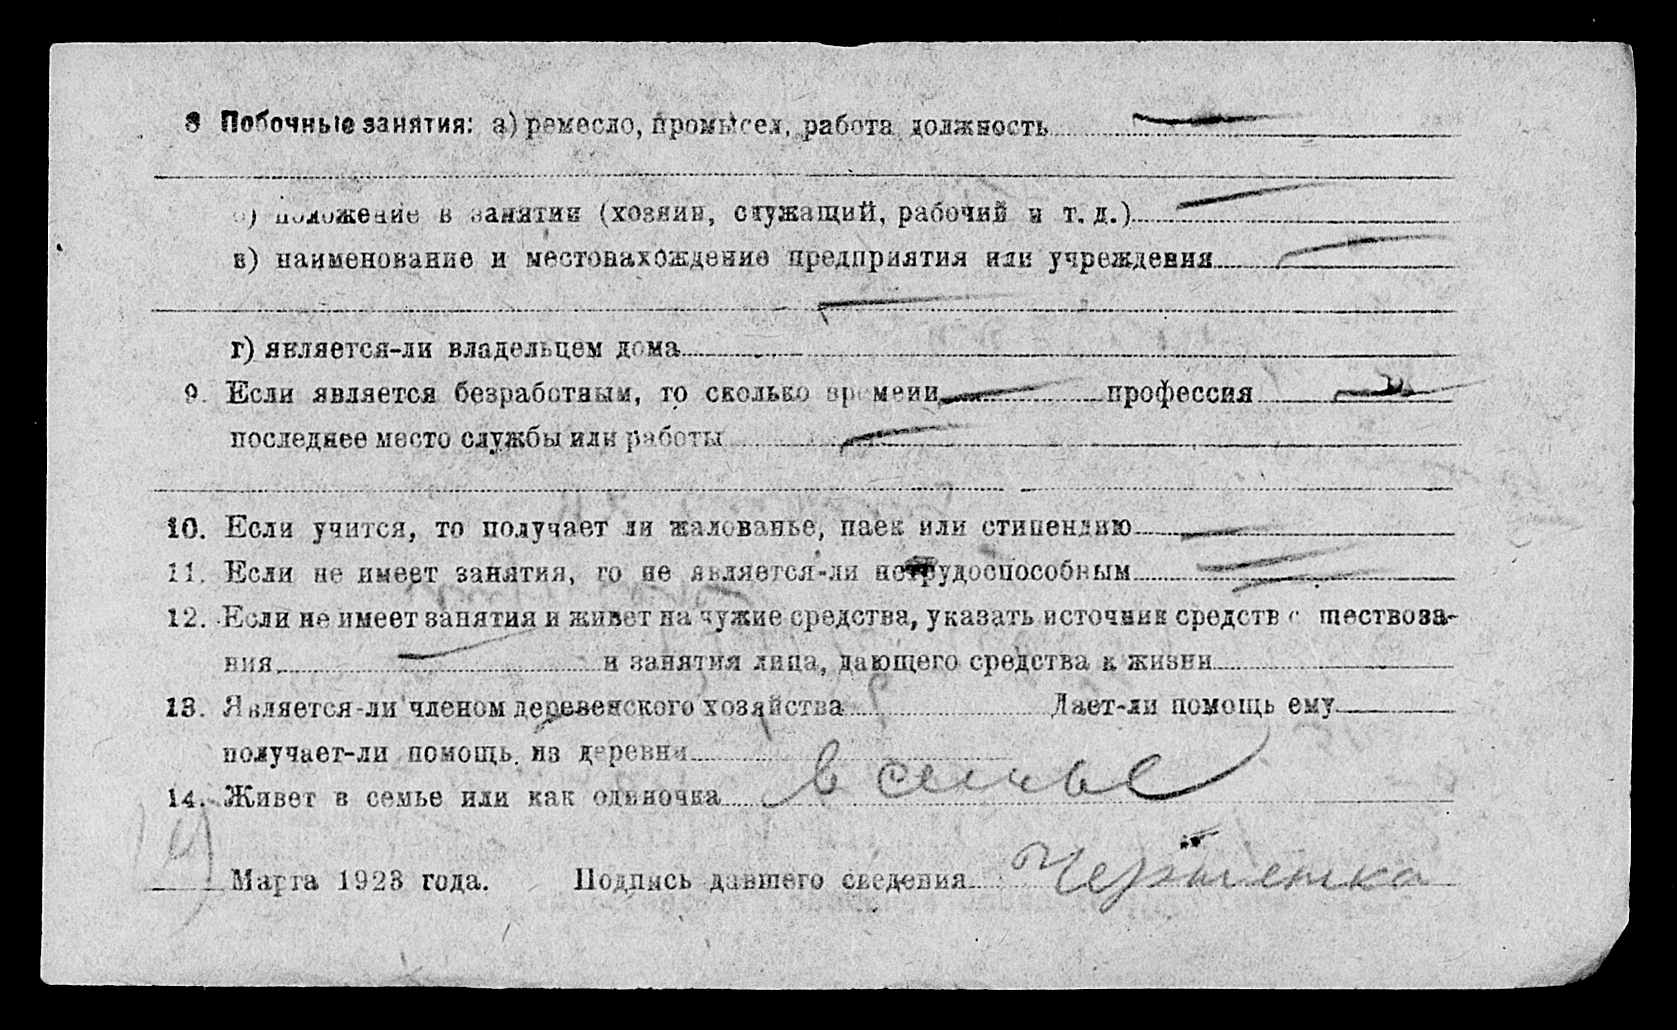 8 Побочные занятия: а) ремесло, промысел, работа должность
б) положение в занятии (хозяин, служащий, рабочий и т. д.)
в) наименование и местонахождение предприятия или учреждения
г) является-ли владельцем дома
9. Если является безработным, то сколько времени профессия
последнее место службы или работы
10. Если учится, то получает ли жалованье, паек или стипендию
11. Если не имеет занятия, то не является-ли нетрудоспособным
12. Если не имеет занятия и живет на чужие средства, указать источник средств с ществова-
ния и занятия лица, дающего средства к жизни
13. Является-ли членом деревенского хозяйства Дает-ли помощь ему
получает-ли помощь из деревни
14. Живет в семье или как одиночка в семье
Марта 1923 года. Подпись давшего сведения